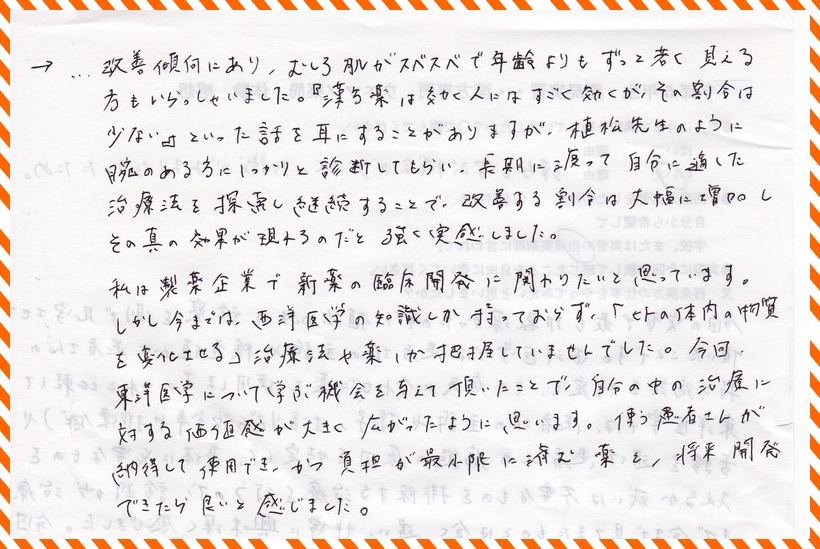 → … 改善傾向にあり、むしろ肌がスベスベで年齢よりもずっと若く見える
方もいらっしゃいました。『漢方薬は効く人にはすごく効くが、その割合は
少ない』といった話を耳にすることがありますが、植松先生のように
腕のある方にしっかりと診断してもらい、長期に渡って自分に適した
治療法を探索し継続することで、改善する割合は大幅に増加し
その真の効果が現れるのだと強く実感しました。
私は製薬企業で新薬の臨床開発に関わりたいと思っています。
しかし今までは、西洋医学の知識しか持っておらず、「ヒトの体内の物質
を変化させる」治療法や薬しか把握していませんでした。今回、
東洋医学について学ぶ機会を与えて頂いたことで、自分の中の治療に
対する価値感が大きく広がったように思います。使う患者さんが
納得して使用でき、かつ負担が最小限に済む薬を、将来開発
できたら良いと感じました。